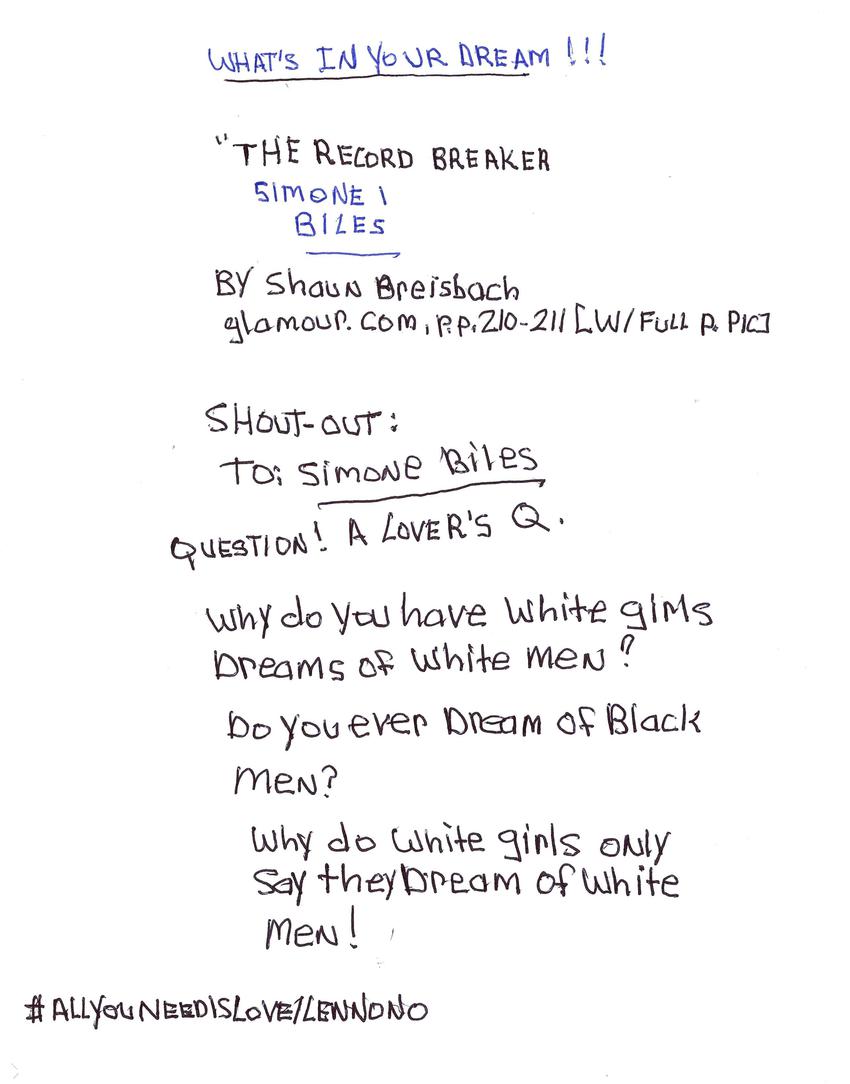 WHAT'S IN YOUR DREAM !!!
"THE RECORD BREAKER
SIMONE \
BILES
BY Shaun Dreisbach
glamour.com, p.p.210-211 [W/FULL P. PIC]
SHOUT-OUT:
TO: Simone Biles
QUESTION! A LOVER'S Q.
Why do you have White girls
Dreams of White Men?
Do you ever Dream of Black
Men?
Why do White girls only
Say they Dream of White
Men!
#ALLYOUNEEDISLOVE/LENNONO